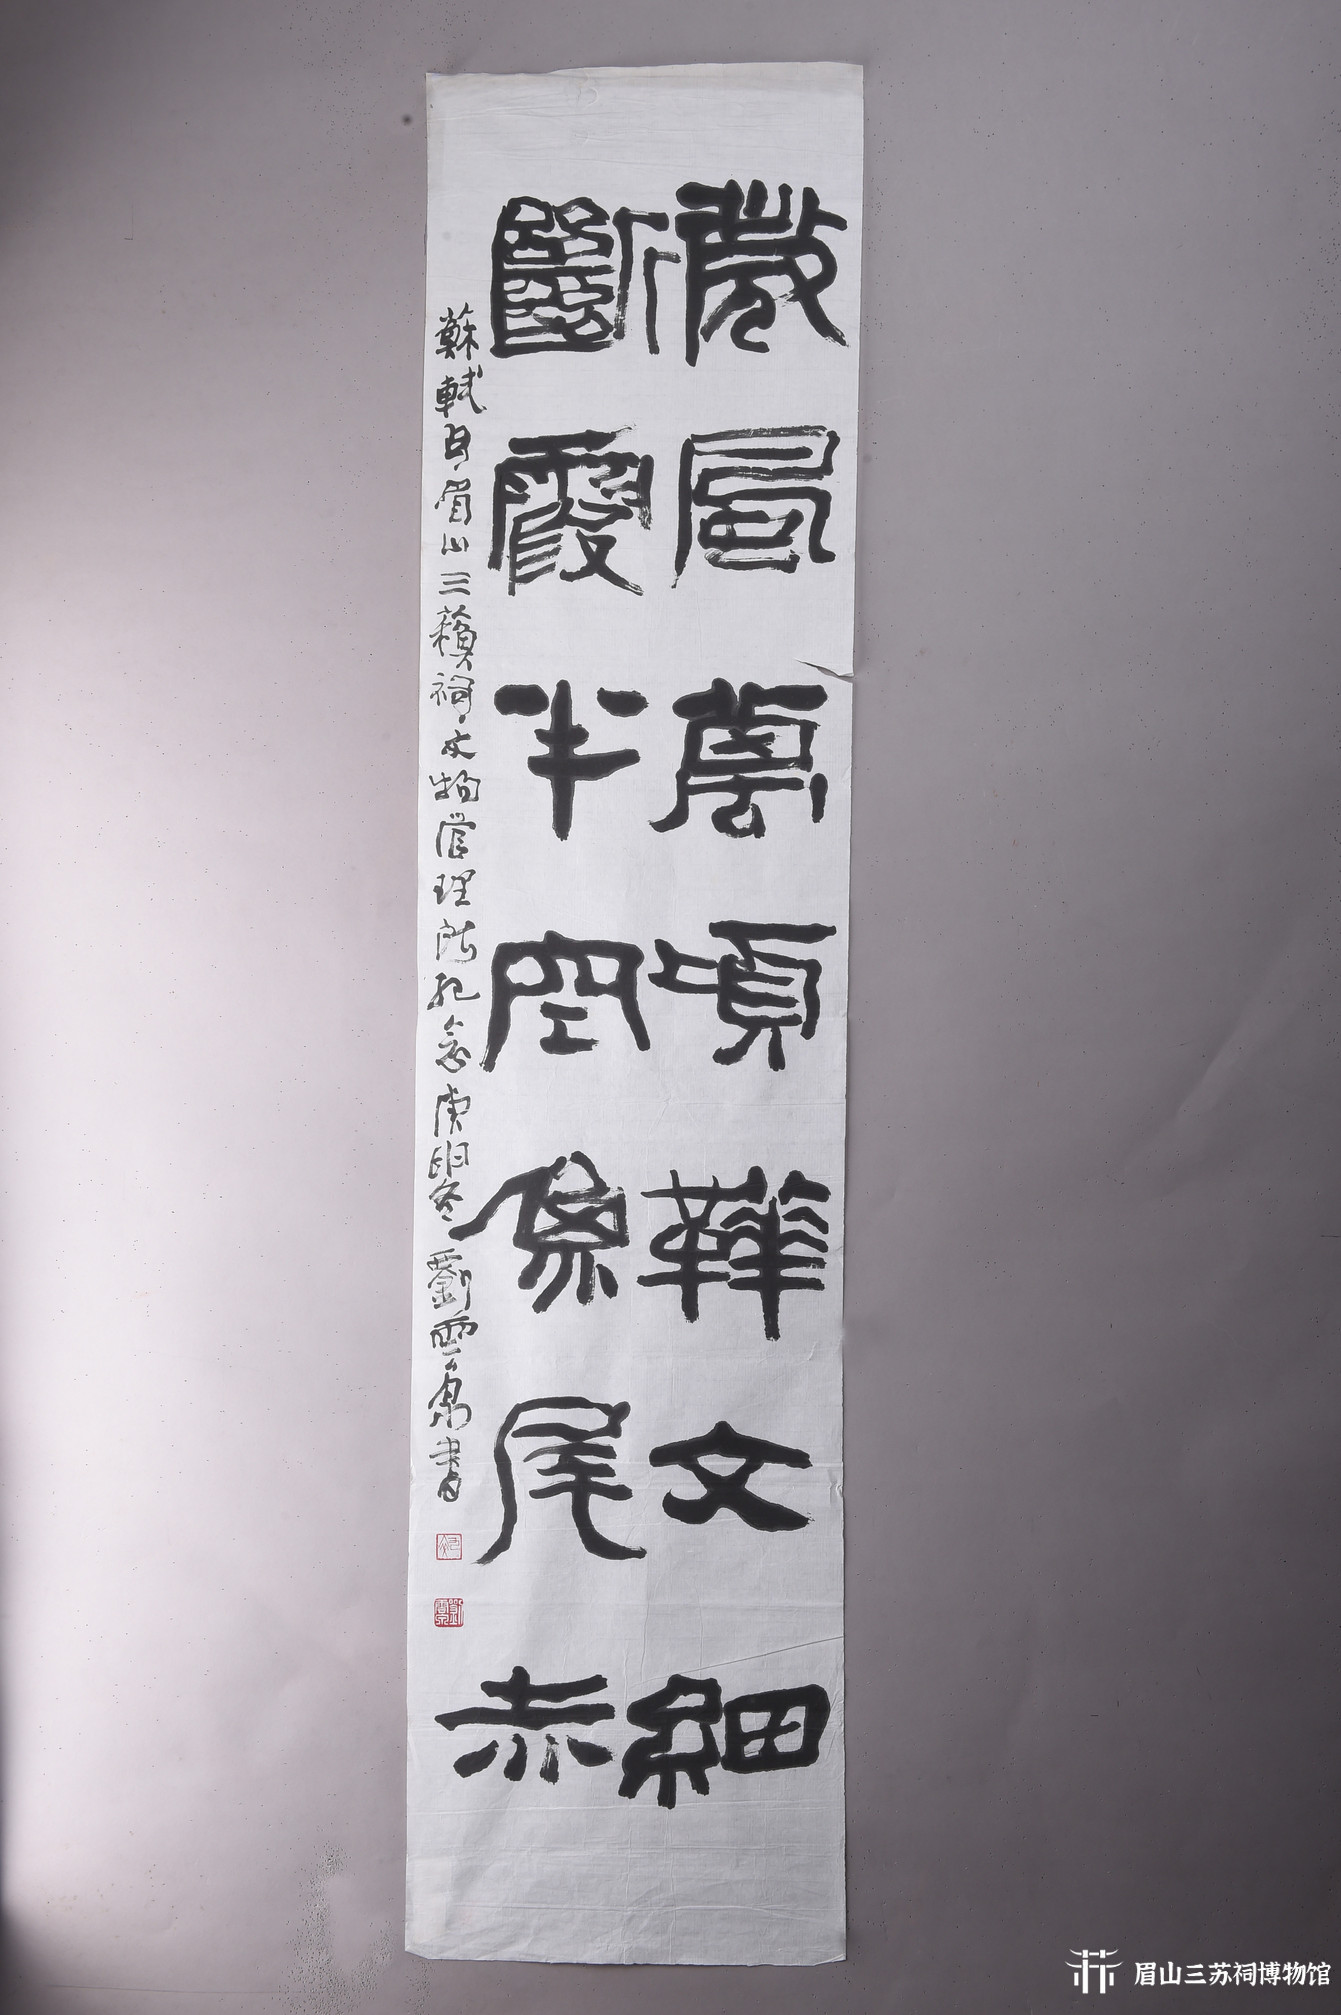 微風萬頃鞾文細
斷霞半空魚尾赤
蘇軾句眉山三蘇祠文物管理所紀念庚申冬劉雲泉書
眉山三苏祠博物馆